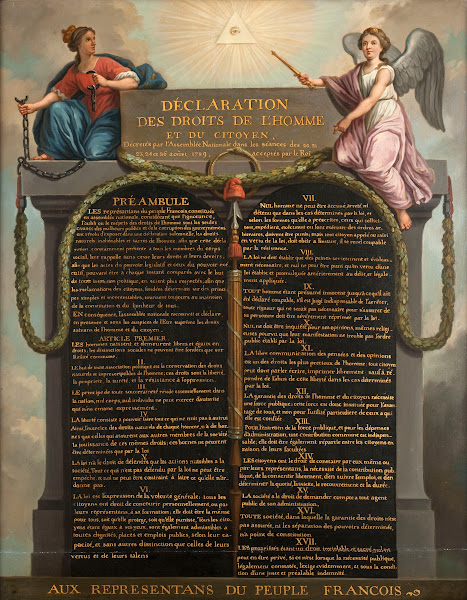 DÉCLARATION
DES DROITS DE L'HOMME
ET DU CITOYEN,
Décrétés par l'Assemblée Nationale dans les séances des 20, 21,
23, 24 et 26 août 1789, acceptés par le Roi
PRÉAMBULE
LES représentans du peuple François, constitués
en assemblée nationale, considérant que l'ignorance,
l'oubli ou le mépris des droits de l'homme sont les seules
causes des malheurs publics et de la corruption des gouvernemens
ont résolu d'exposer dans une déclaration solemnelle, les droits
naturels, inaliénables et sacrés de l'homme; afin que cette décla-
ration, constamment présente à tous les membres du corps
social, leur rappelle sans cesse leurs droits et leurs devoirs;
afin que les actes du pouvoir législatif et ceux du pouvoir exé-
cutif, pouvant être à chaque instant comparés avec le but
de toute institution politique, en soient plus respectés; afin que
les réclamations des citoyens, fondées désormais sur des princi-
pes simples et incontestables, tournent toujours au maintien
de la constitution et du bonheur de tous.
EN conséquence, l'assemblée nationale reconnoit et déclare,
en présence et sous les auspices de l'Etre suprême les droits
suivans de l'homme et du citoyen.
ARTICLE PREMIER
LES hommes naissent et demeurent libres et égaux en
droits. les distinctions sociales ne peuvent être fondées que sur
l'utilité commune.
II.
LE but de toute association politique est la conservation des droits
naturels et imprescriptibles de l'homme; ces droits sont la liberté,
la propriété, la sureté, et la résistance à l'oppression.
III.
LE principe de toute souveraineté réside essentiellement dans
la nation, nul corps, nul individu ne peut exercer d'autorité
qui n'en émane expressément.
IV.
LA liberté consiste à pouvoir faire tout ce qui ne nuit pas à autrui.
Ainsi, l'exercice des droits naturels de chaque homme, n'a de bor-
nes que celles qui assurent aux autres membres de la société
la jouissance de ces mêmes droits; ces bornes ne peuvent
être déterminées que par la loi
V.
LA loi n'a le droit de défendre que les actions nuisibles à la
société. Tout ce qui n'est pas défendu par la loi ne peut être
empêché, et nul ne peut être contraint à faire ce qu'elle n'or-
donne pas.
VI.
LA loi est l'expression de la volonté générale; tous les
citoyens ont droit de concourir personnellement, ou par
leurs représentans, à sa formation; elle doit être la même
pour tous, soit qu'elle protège, soit qu'elle punisse. Tous les cito-
yens étant égaux à ses yeux, sont également admissibles à
toutes dignités, places et emplois publics, selon leur ca-
pacité, et sans autres distinction que celles de leurs
vertus et de leurs talens
VII.
NUL homme ne peut être accusé, arrêté ni
détenu que dans les cas déterminés par la loi, et
selon les formes qu'elle a prescrites. ceux qui sollicitent,
expédient, exécutent ou font exécuter des ordres ar-
bitraires, doivent être punis; mais tout citoyen appelé ou saisi
en vertu de la loi, doit obéir à l'instant, il se rend coupable
par la résistance.
VIII.
LA loi ne doit établir que des peines strictement et évidem-
ment nécessaire, et nul ne peut être puni qu'en vertu d'une
loi établie et promulguée antérieurement au délit, et légale-
ment appliquée.
IX.
TOUT homme étant présumé innocent jusqu'à ce qu'il ait
été déclaré coupable, s'il est jugé indispensable de l'arrêter,
toute rigueur qui ne seroit pas nécessaire pour s'assurer de
sa personne doit être sévèrement réprimée par la loi.
X.
NUL ne doit être inquiété pour ses opinions, mêmes religi-
euses pourvu que leur manifestation ne trouble pas l'ordre
public établi par la loi.
XI.
LA libre communication des pensées et des opinions
est un des droits les plus précieux de l'homme; tout citoyen
peut donc parler, écrire, imprimer librement; sauf à ré-
pondre de l'abus de cette liberté dans les cas déterminés
par la loi.
XII.
LA garantie des droits de l'homme et du citoyen nécessite
une force publique; cette force est donc instituée pour l'avan-
tage de tous, et non pour l'utilité particulière de ceux à qui
elle est confiée.
XIII.
POUR l'entretien de la force publique, et pour les dépenses
d'administration, une contribution commune est indispen-
sable; elle doit être également répartie entre les citoyens en
raison de leurs facultées.
XIV.
LES citoyens ont le droit de constater par eux même ou
par leurs représentans, la nécessité de la contribution pub-
lique, de la consentir librement, d'en suivre l'emploi, et d'en
déterminer la quotité, l'assiette, le recouvrement et la durée.
XV.
LA société a le droit de demander compte à tout agent
public de son administration.
XVI.
TOUTE société, dans laquelle la garantie des droits n'est
pas assurée, ni la séparation des pouvoirs déterminée,
n'a point de constitution.
XVII.
LES propriétés étant un droit inviolable et sacré, nul ne
peut en être privé, si ce n'est lorsque la nécessité publique,
légalement constatée, l'exige évidemment, et sous la condi-
tion d'une juste et préalable indemnité.
AUX REPRESENTANS DU PEUPLE FRANCOIS